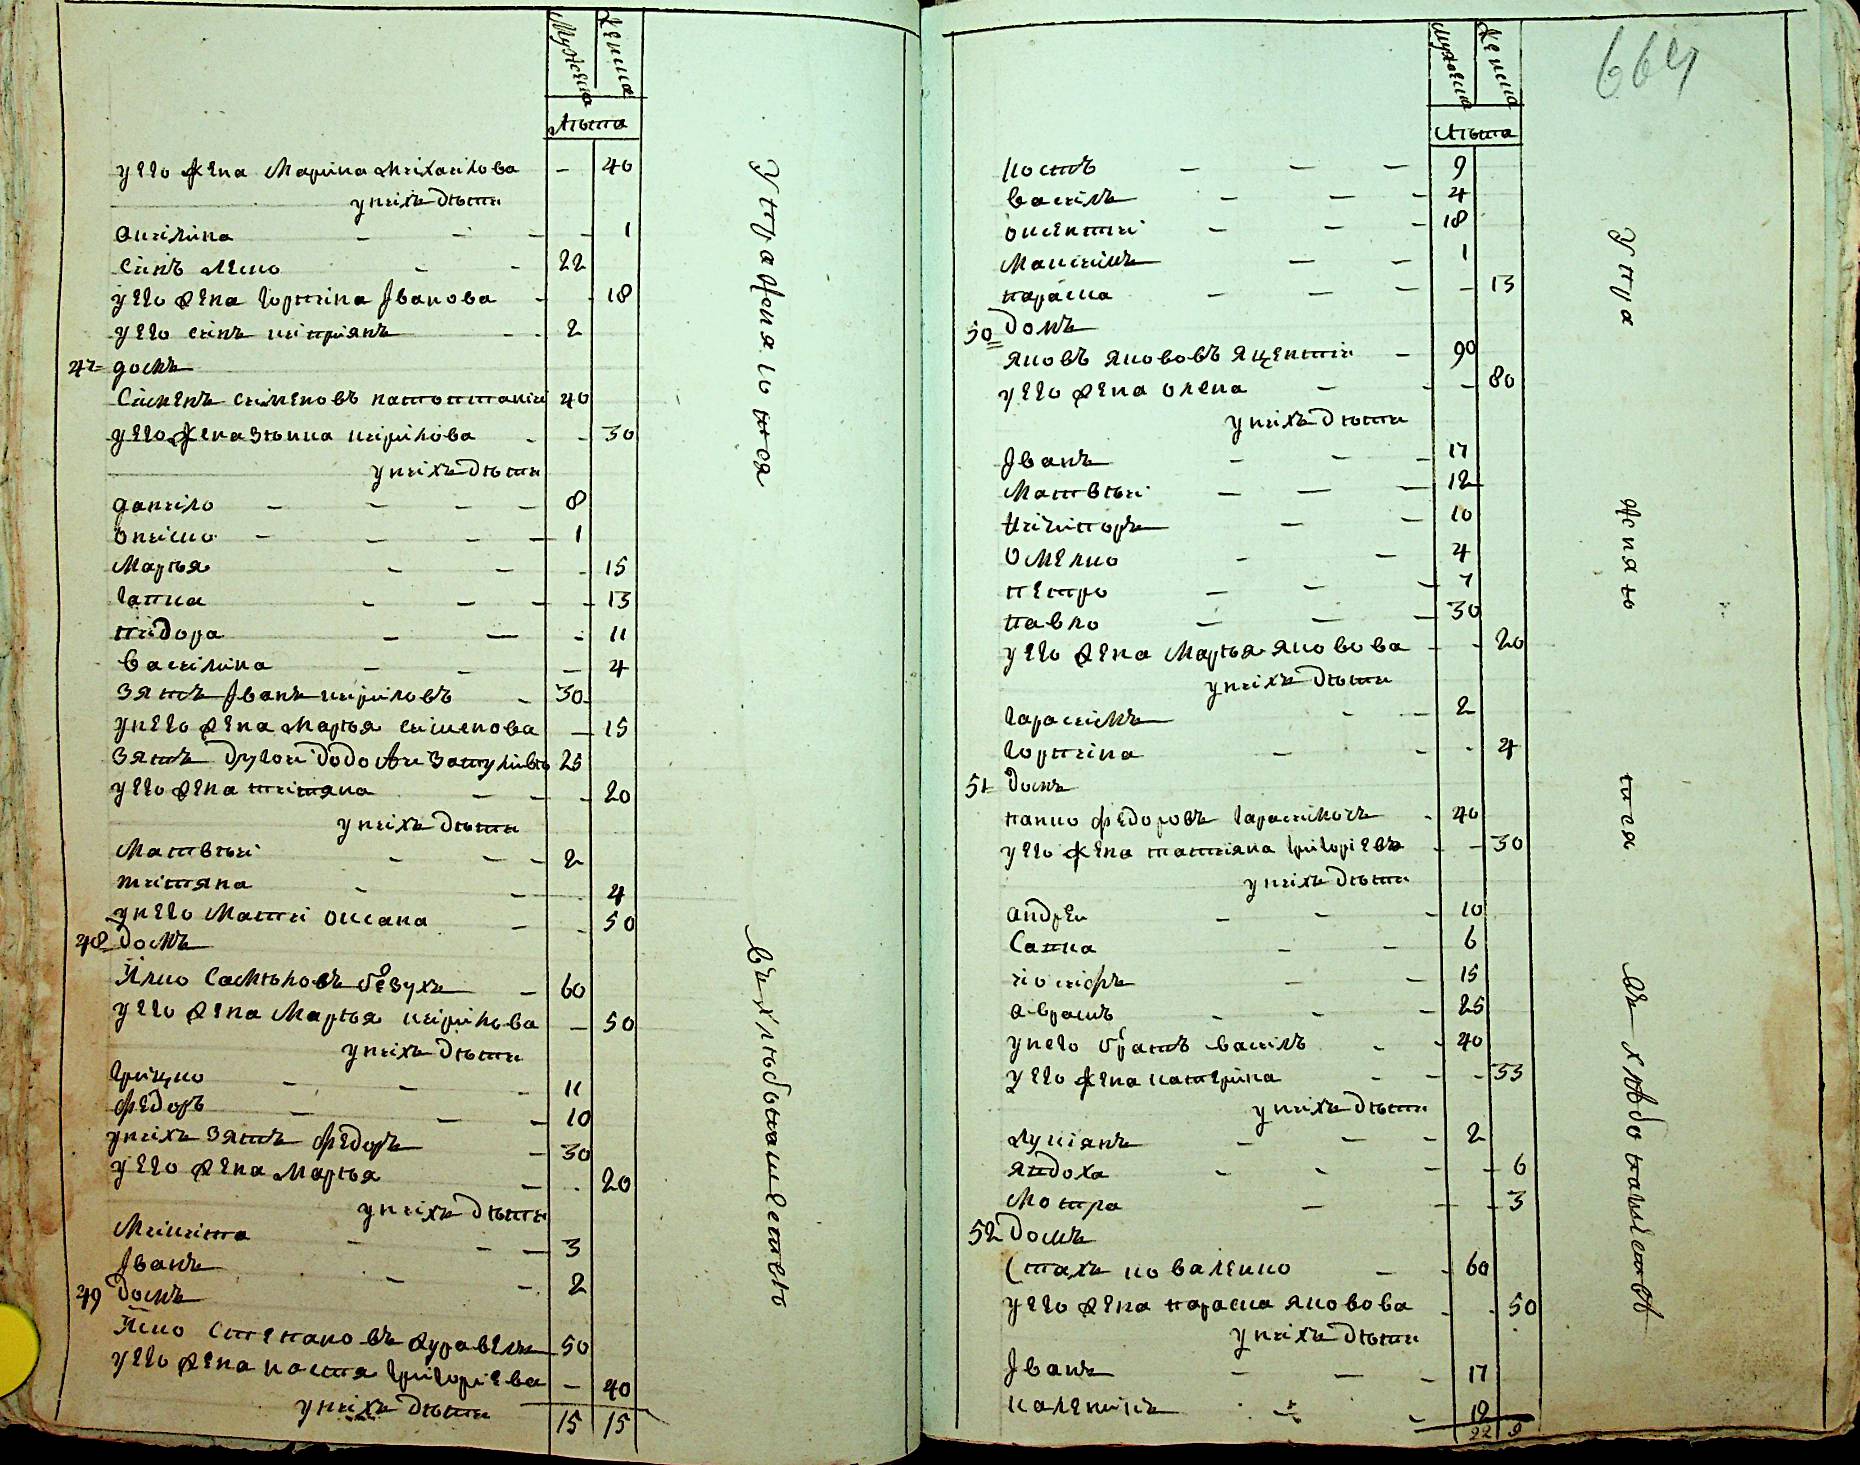 Мужска
Женска
Лѣта
у его жена Марина михаилова – 40
у нихъ дѣти
акилина – – – – 1
синъ леско – – 22
у его жена горпина Јванова – – 18
у его синъ кипріянъ – – 2
47 домъ
Сименъ сименовъ 40
у его жена зѣнка кирилова – – 30
у нихъ дѣти
данило – – – – 8
ониско – – – – 1
Марѣя – – – 15
гапка – – – – 13
тидора – – – 11
василина – – – 4
зятъ Јванъ кириловъ – 30
у него жена Марѣя сименова – 15
зятъ другои 25
у его жена титяна – – – 20
у нихъ дѣти
Матвѣи – – – 2
титяна – – 4
у него Матки оксана – – 50
48 домъ
Ілко Самѣловъ безухъ – 60
у его жена Марѣя кирилова – 50
у нихъ дѣти
грицко – – 11
федоръ – – – 10
у нихъ зятъ федоръ – 30
у его жена Марѣя – – 20
у нихъ дѣти
Микита – – – 3
Јванъ – – 2
49 домъ
Яско Степановъ журавель 50
у его жена настя григоріева – 40
у нихъ дѣти
15 15
Упражняются
въ хлѣбопашествѣ
664
Мужска
Женска
Лѣта
костъ – – – 9
василъ – – – 4
оксентии – – 18
Максимъ – – 1
параска – – – – 13
50 домъ
яковъ якововъ яцентии – 90
у его жена олена – – – 80
у нихъ дѣти
Јванъ – – – 17
Матвѣи – – – 12
Ничипоръ – – 10
Омелко – – 4
петро – – – 7
павло – – – 30
у его жена Марѣя яковова – – 20
у нихъ дѣти
гарасимъ – – 2
горпина – – – 4
51 домъ
панко федоровъ гарасимовъ – 40
у его жена татіяна григоріева – – 30
у нихъ дѣти
андреи – – – 10
Сапка – – 6
іосифъ – – 15
аврамъ – – – 25
у него братъ василъ – – 40
у его жена катерина – – – 33
у нихъ дѣти
лукіянъ – – – 2
явдоха – – – – 6
Мотра – – – 3
52 домъ
Стахъ коваленко – – 60
у его жена параска яковова – – 50
у нихъ дѣти
Јванъ – – – 17
каленикъ – – 12
22 9
Упра
жняю
тся
въ хлѣбопашествѣ